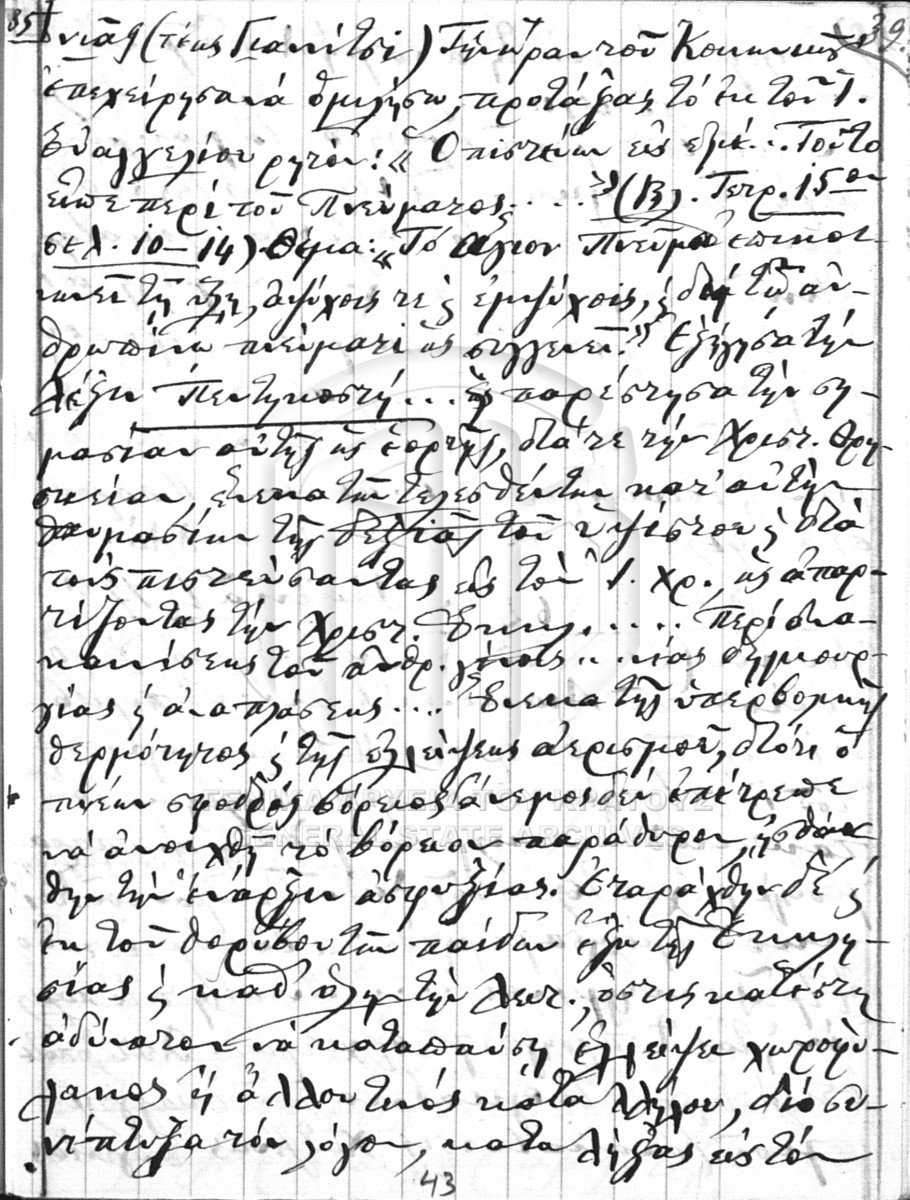 85 39
νιᾶς (τέως Γιανίτσι) Τὴν ὥραν τοῦ Κοινωνικοῦ
ἐπεχείρησα νά ὁμιλήσω, προτάξας τό ἐκ τοῦ Ἰ.
Εὐαγγελίου ρητόν: «Ὁ πιστεύων εἰς ἐμέ... Τοῦτο
εἶπε περί τοῦ Πνεύματος....» (Β). Τετρ. 15ον
σελ. 10-14) Θέμα: «Τό ἅγιον Πνεῦμα ἐπικοι-
νωνεῖ τῇ ὕλῃ, ἀψύχοις τε ϛ ἐμψύχοις, ϛ δή τῷ ἀν-
θρωπίνῳ πνεύματι ὡς συγγενεῖ.» Ἐξήγησα τήν
λέξιν Πεντηκοστή... ϛ παρέστησα τὴν ση-
μασίαν αὐτῆς ὡς ἑορτῆς, διά τε τήν Χριστ. θρη-
σκείαν, ἕνεκα τῶν τελεσθέντων κατ' αὐτὴν
θαυμασίων τῆς δεξιᾶς τοῦ ὑψίστου ϛ διά
τούς πιστεύσαντας εἰς τὸν Ἰ. Χρ., ὡς ἀπαρ-
τίζοντας τήν Χριστ. Ἐκκλ...... Περί ἀνα-
καινίσεως τοῦ ἀνθρ. γένους... νέας δημιουρ-
γίας ϛ ἀναπλάσεως.... Ἕνεκα τῆς ὑπερβολικῆς
θερμότητος ϛ τῆς ἐλλείψεως ἀερισμοῦ, διότι ὁ
πνέων σφοδρός βόρειος ἄνεμος δέν ἐπέτρεπε
νά ἀνοιχθῇ τό βόρειον παράθυρον, ᾐσθάν
θην τήν ἔναρξιν ἀσφυξίας. Ἐταράχθην δέ ϛ
ἐκ τοῦ θορύβου τῶν παίδων ἔξω τῆς Ἐκκλη-
σίας ϛ καθ' ὅλην τήν Λειτ., ὅστις κατέστη
ἀδύνατον νά καταπαύσῃ ἐλλείψει χωροφύ-
λακος ἤ ἄλλου τινός καταλλήλου, διό συ-
νέπτυξα τόν λόγον, καταλήξας εἰς τόν
43
ΓΕΝΙΚΑ ΑΡΧΕΙΑ ΤΟΥ ΚΡΑΤΟΥΣ
GENERAL STATE ARCHIVES